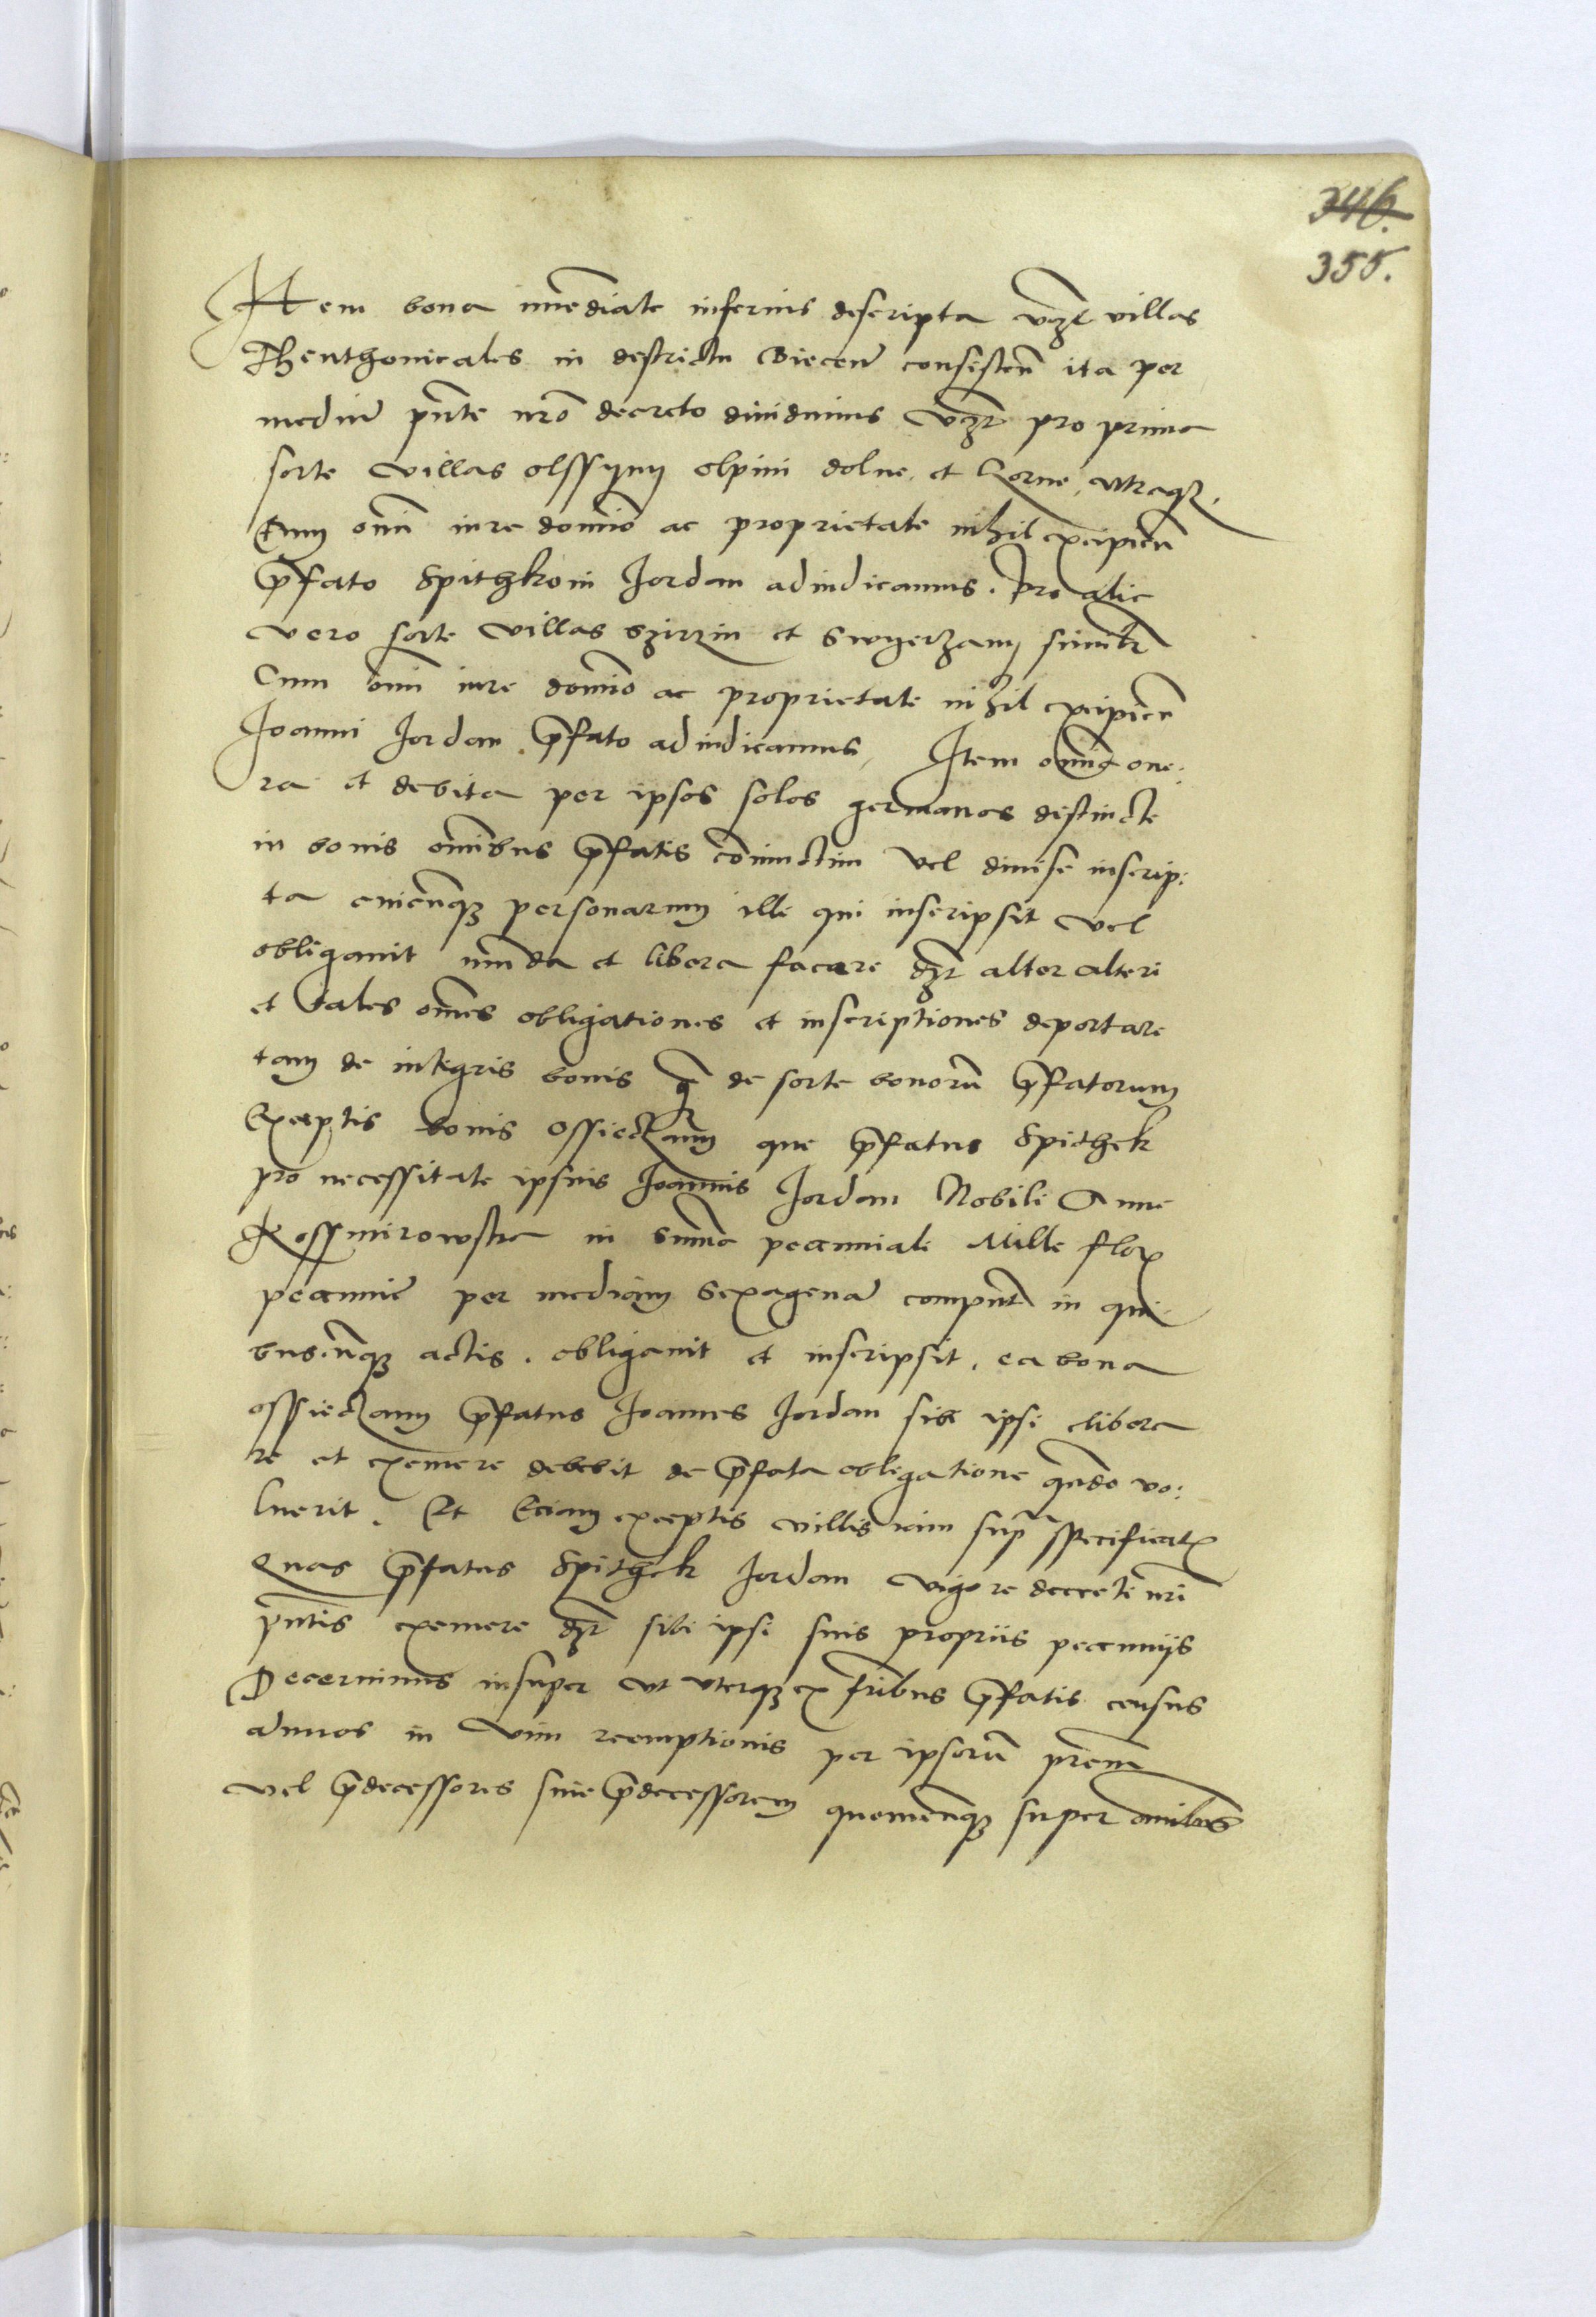 346.
355.
Item bona im̄ediate inferius descripta vꝫt villas
Theuthonicales in destrictu Biecen̄ consisten̄ ita per
mediū pn̄te nr̄o decreto diuidimus vꝫt pro prima
sorte villas olssyny olpini dolne et Gorne, vtraqꝫ
Cum om̄i iure domīo ac proprietate nihil excipien̄
p̄fato Spithkoni Jordan adiudicamus. Pro alia
vero sorte villas szirzin et Swyerzany similr̄
Cum om̄i iure domīo ac proprietate nihil excipien̄
Joanni Jordan p̄fato adiudicamus, Item om̄ia one:
ra et debita per ipsos solos germanos destincte
in bonis om̄ibus p̄fatis coniūctim vel diuise inscrip:
ta cuicunqꝫ personarum ille qui inscripsit vel
obligauit munda et libera facere dꝫt alter alteri
et tales om̄es obligationes et inscriptiones deportare
tam de integris bonis q̄ de sorte bonorū p̄fatorum
Exceptis bonis Ossieczany que p̄fatus Spithek
pro necessitate ipsius Joannis Jordan Nobili Anne
Rossmirowska in sum̄a pecuniali Mille flor
pecunie per mediam sexagenā computn̄ in qui
buscunqꝫ actis. obligauit et inscripsit, ea bona
ossieczany p̄fatus Joannes Jordan sibi ipsi libera
re et exemere debebit de p̄fata obligatione quādo vo:
luerit. Et Eciam exceptis villis iam supra specificat
Quas p̄fatus Spithek Jordan vigore decreti nr̄i
pn̄tis exemere dꝫt sibi ipsi suis propriis pecuniys
Decernimus insuper vt vterqꝫ ex fr̄ibus p̄fatis census
annuos in vim reemptionis per ipsorū pr̄em
vel p̄decessores siue p̄decessorem quemcunqꝫ super om̄ibus